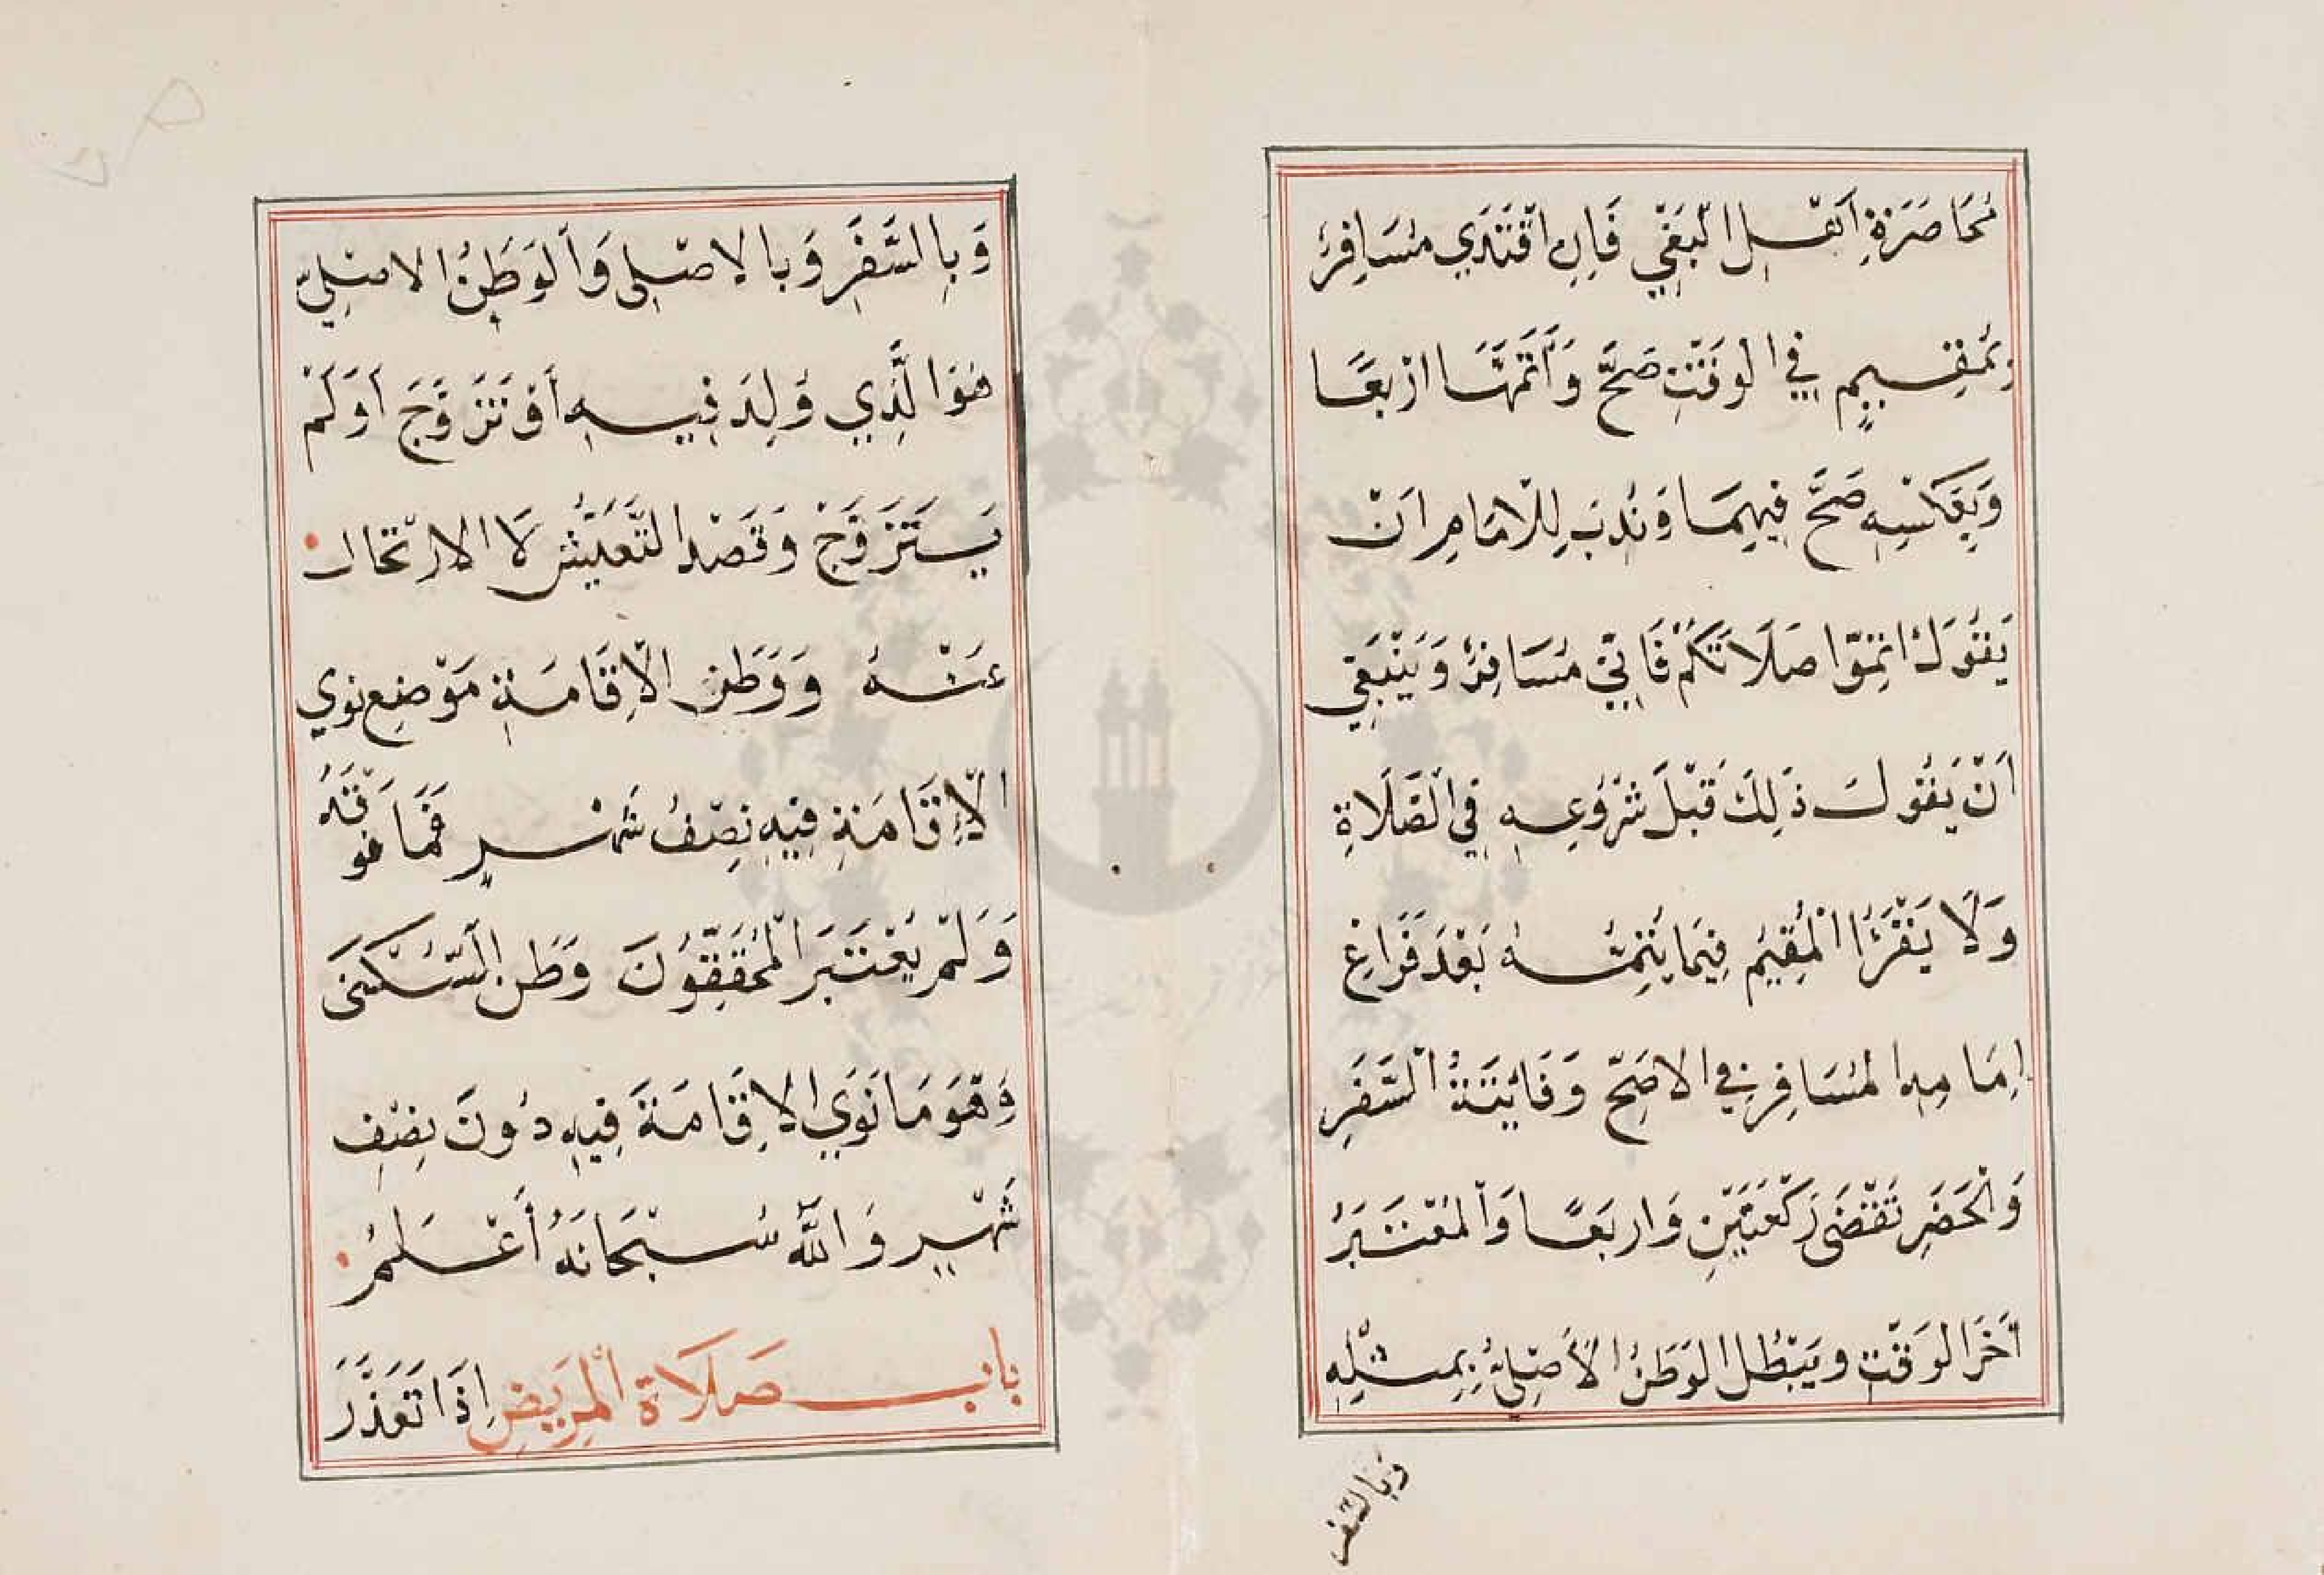 مُحَاصَرَةِ اَهْلِ الْبَغْيِ فَاِنِ اقْتَدَي مُسَافِرٌ
بِمُقِيمٍ فِي الْوَقْتِ صَحَّ وَاَتَمَّهَا اَرْبَعًا
وَبِعَكْسِهِ صَحَّ فِيهِمَا وَنُدِبَ لِلْاِمَامِ اَنْ
يَقُولَ اَتِمُّوا صَلَاتَكُمْ فَاِنِّي مُسَافِرٌ وَيَنْبَغِي
اَنْ يَقُولَ ذَلِكَ قَبْلَ شُرُوعِهِ فِي الصَّلَاةِ
وَلَا يَقْرَأُ الْمُقِيمُ فِيمَا يُتِمُّهُ بَعْدَ فَرَاغِ
اِمَامِهِ الْمُسَافِرِ فِي الاَصَحِّ وَفَائِتَةُ السَّفَرِ
وَالْحَضَرِ تُقْضَى رَكْعَتَيْنِ وَاَرْبَعًا وَالْمُعْتَبَرُ
آخَرَ الوَقْتِ وَيَبْطُلُ الوَطَنُ الْأَصْلِيُّ بِمِثْلِهِ
وبالسّفر
وَبِالسَّفَرِ وَبِالاصْلِى وَالْوَطَنُ الاصْلِيّ
هُوَ الَّذِي وُلِدَ فِيهِ أَوْ تَزَوَّجَ اَوْ لَمْ
يَتَزَوَّجْ وَقَصْدَ التَّعَيُّشِ لَا الارْتِحَالِ
عَنْهُ وَوَطَنُ الْاِقَامَةِ مَوْضِعٌ نوي
الْاِقَامَةِ فِيهِ نِصْفُ شَهْرٍ فَمَا فَوْقَهُ
وَلَمْ يَعْتَبَرِ الْمُحَقِّقُونَ وَطَنَ السُّكْنَى
وَهُوَ مَا نَوَي الاِقَامَةَ فِيهِ دُونَ نِصْفِ
شَهْرٍ وَاللّٰهُ سُبْحَانَهُ أَعْلَمُ
بابُ صَلَاةِ الْمَرِيضِ اِذَا تَعَذَّرَ